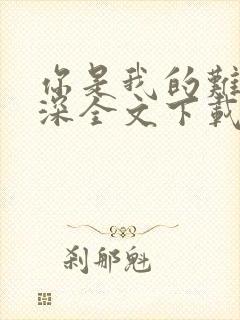 你是我的難
深全文下載
刹那魁